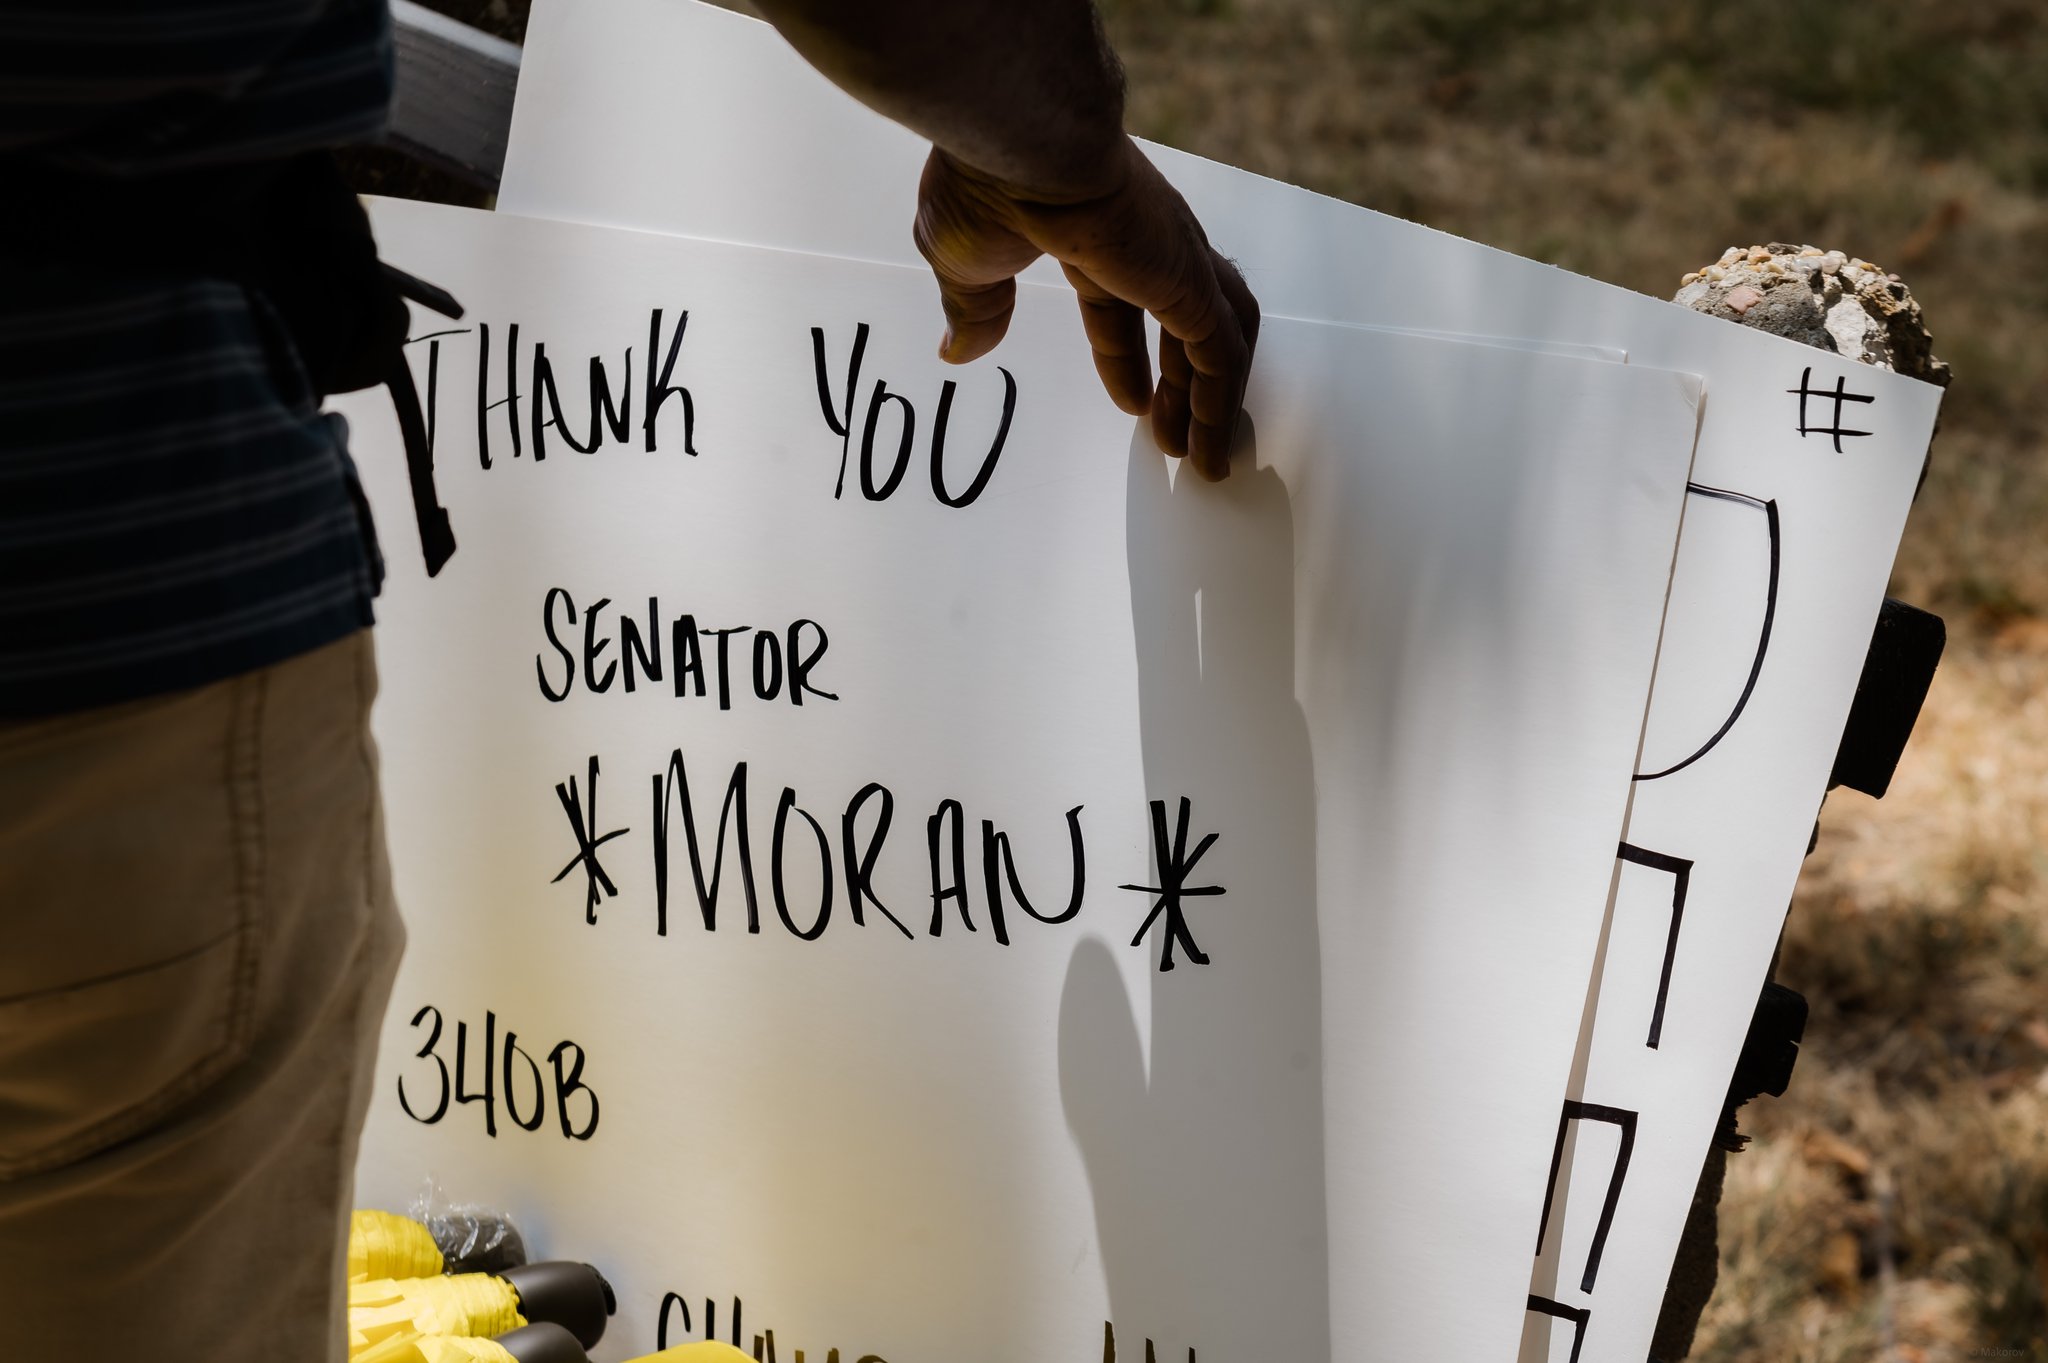 THANK YOU
SENATOR
*MORAN*
340B
#
© Makorov